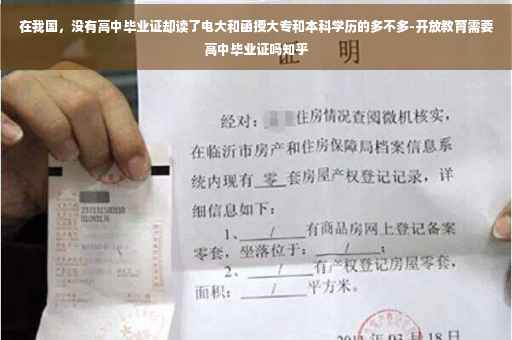 在我国，没有高中毕业证却读了电大和函授大专和本科学历的多不多-开放教育需要
高中毕业证吗知乎
证 明
经对：住房情况查阅微机核实，
在临沂市房产和住房保障局档案信息系
统内现有 零 套房屋产权登记记录，详
细信息如下：
1、 / 有商品房网上登记备案
零套，坐落位于： / ；
2、 / 有产权登记房屋零套，
面积： / 平方米。
03月18日